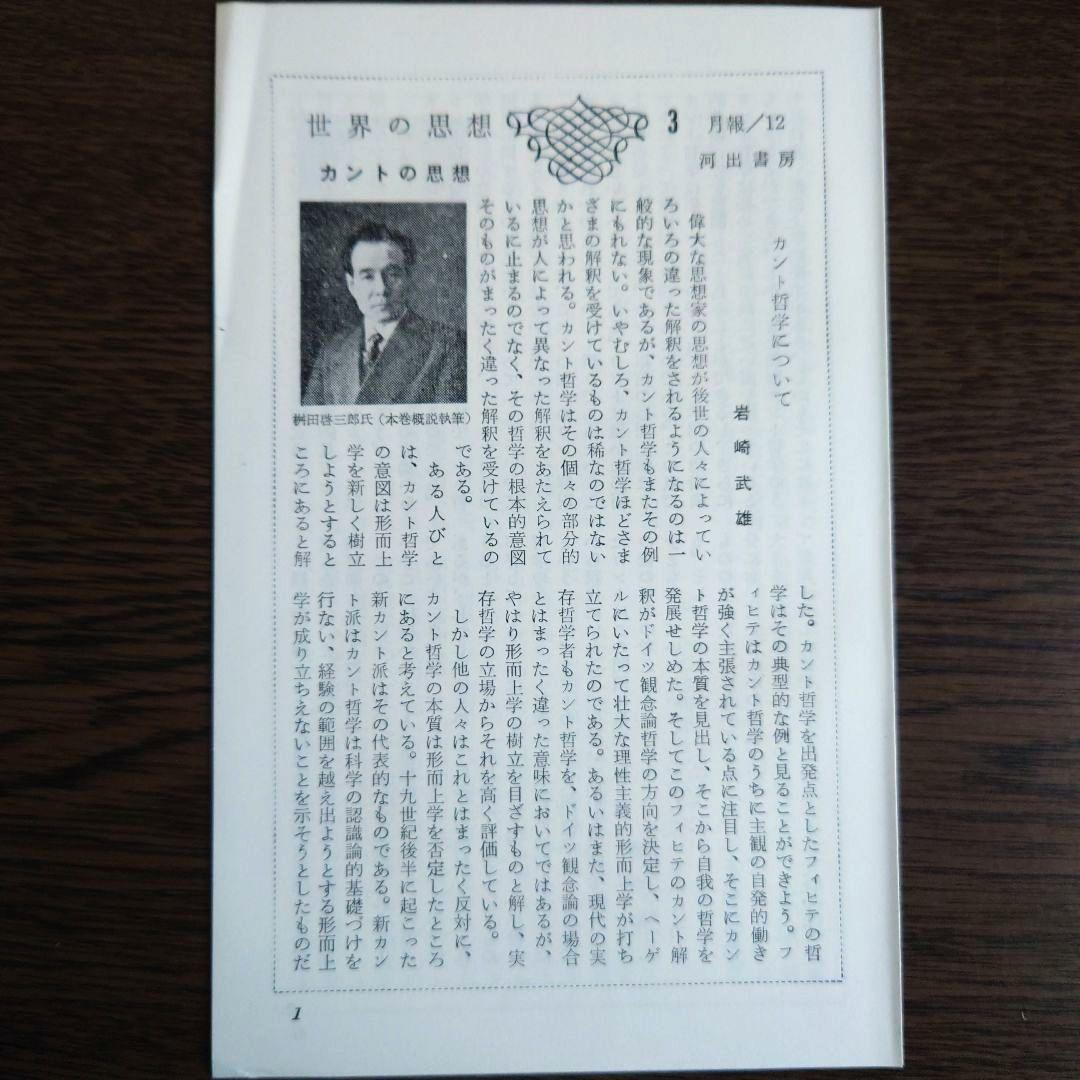 世界の思想
3
月報/12
カントの思想
河出書房
カント哲学について
岩崎武雄
偉大な思想家の思想が後世の人々によってい
ろいろの違った解釈をされるようになるのは一
般的な現象であるが、カント哲学もまたその例
にもれない。いやむしろ、カント哲学ほどさま
ざまの解釈を受けているものは稀なのではない
かと思われる。カント哲学はその個々の部分的
思想が人によって異なった解釈をあたえられて
いるに止まるのでなく、その哲学の根本的意図
そのものがまったく違った解釈を受けているの
である。
ある人びと
は、カント哲学
の意図は形而上
学を新しく樹立
しようとすると
ころにあると解
桝田啓三郎氏(本巻概説執筆)
した。カント哲学を出発点としたフィヒテの哲
学はその典型的な例と見ることができよう。フ
ィヒテはカント哲学のうちに主観の自発的働き
が強く主張されている点に注目し、そこにカン
ト哲学の本質を見出し、そこから自我の哲学を
発展せしめた。そしてこのフィヒテのカント解
釈がドイツ観念論哲学の方向を決定し、ヘーゲ
ルにいたって壮大な理性主義的形而上学が打ち
立てられたのである。あるいはまた、現代の実
存哲学者もカント哲学を、ドイツ観念論の場合
とはまったく違った意味においてではあるが、
やはり形而上学の樹立を目ざすものと解し、実
存哲学の立場からそれを高く評価している。
しかし他の人々はこれとはまったく反対に、
カント哲学の本質は形而上学を否定したところ
にあると考えている。十九世紀後半に起こった
新カント派はその代表的なものである。新カン
ト派はカント哲学は科学の認識論的基礎づけを
行ない、経験の範囲を越え出ようとする形而上
学が成り立ちえないことを示そうとしたものだ
1